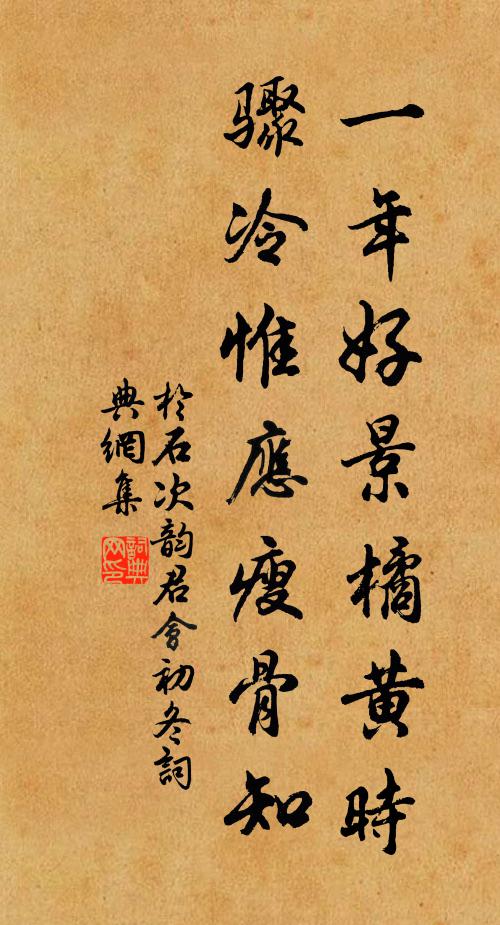 一年好景橘黄時
驟冷惟應瘦骨知
於石次韵君會初冬詞
典網集
詞典
网印